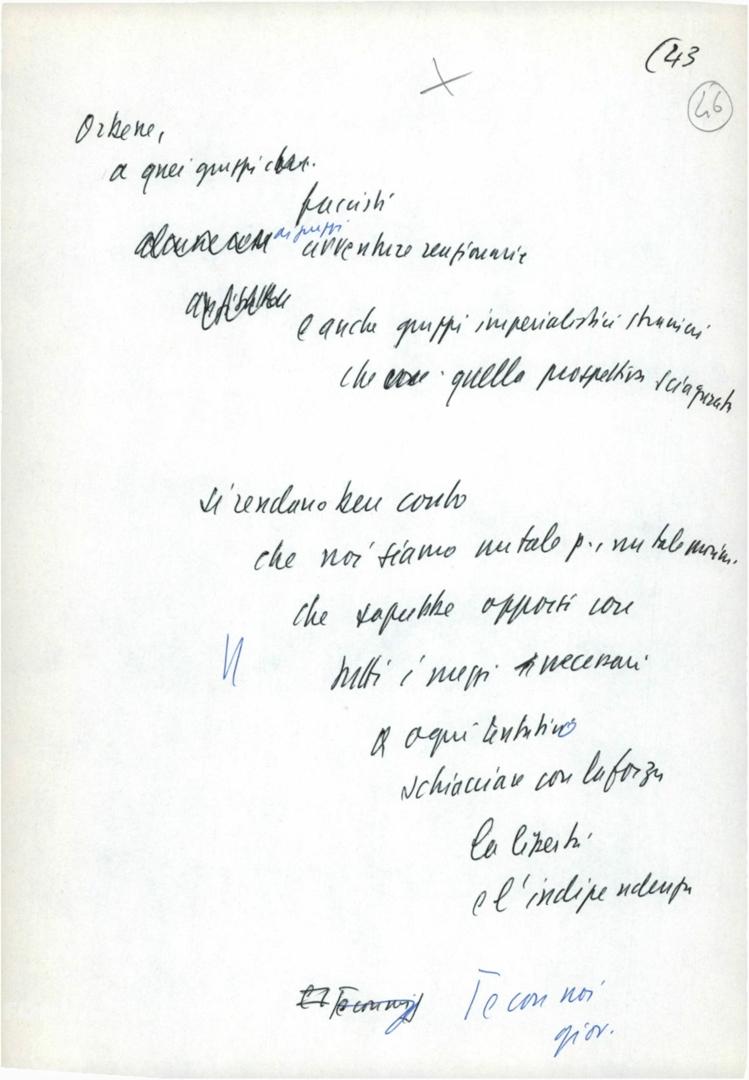 (43
46
Orbene,
a quei gruppi
fascisti
ai gruppi
avventure reazionarie
e anche gruppi imperialistici stranieri
che quella prospettiva sciagurata
si rendano ben conto
che noi siamo un tale p., un tale movim.
che saprebbe opporsi con
tutti i mezzi necessari
a ogni tentativo
schiacciare con la forza
la libertà
e l'indipendenza
E con noi
giov.